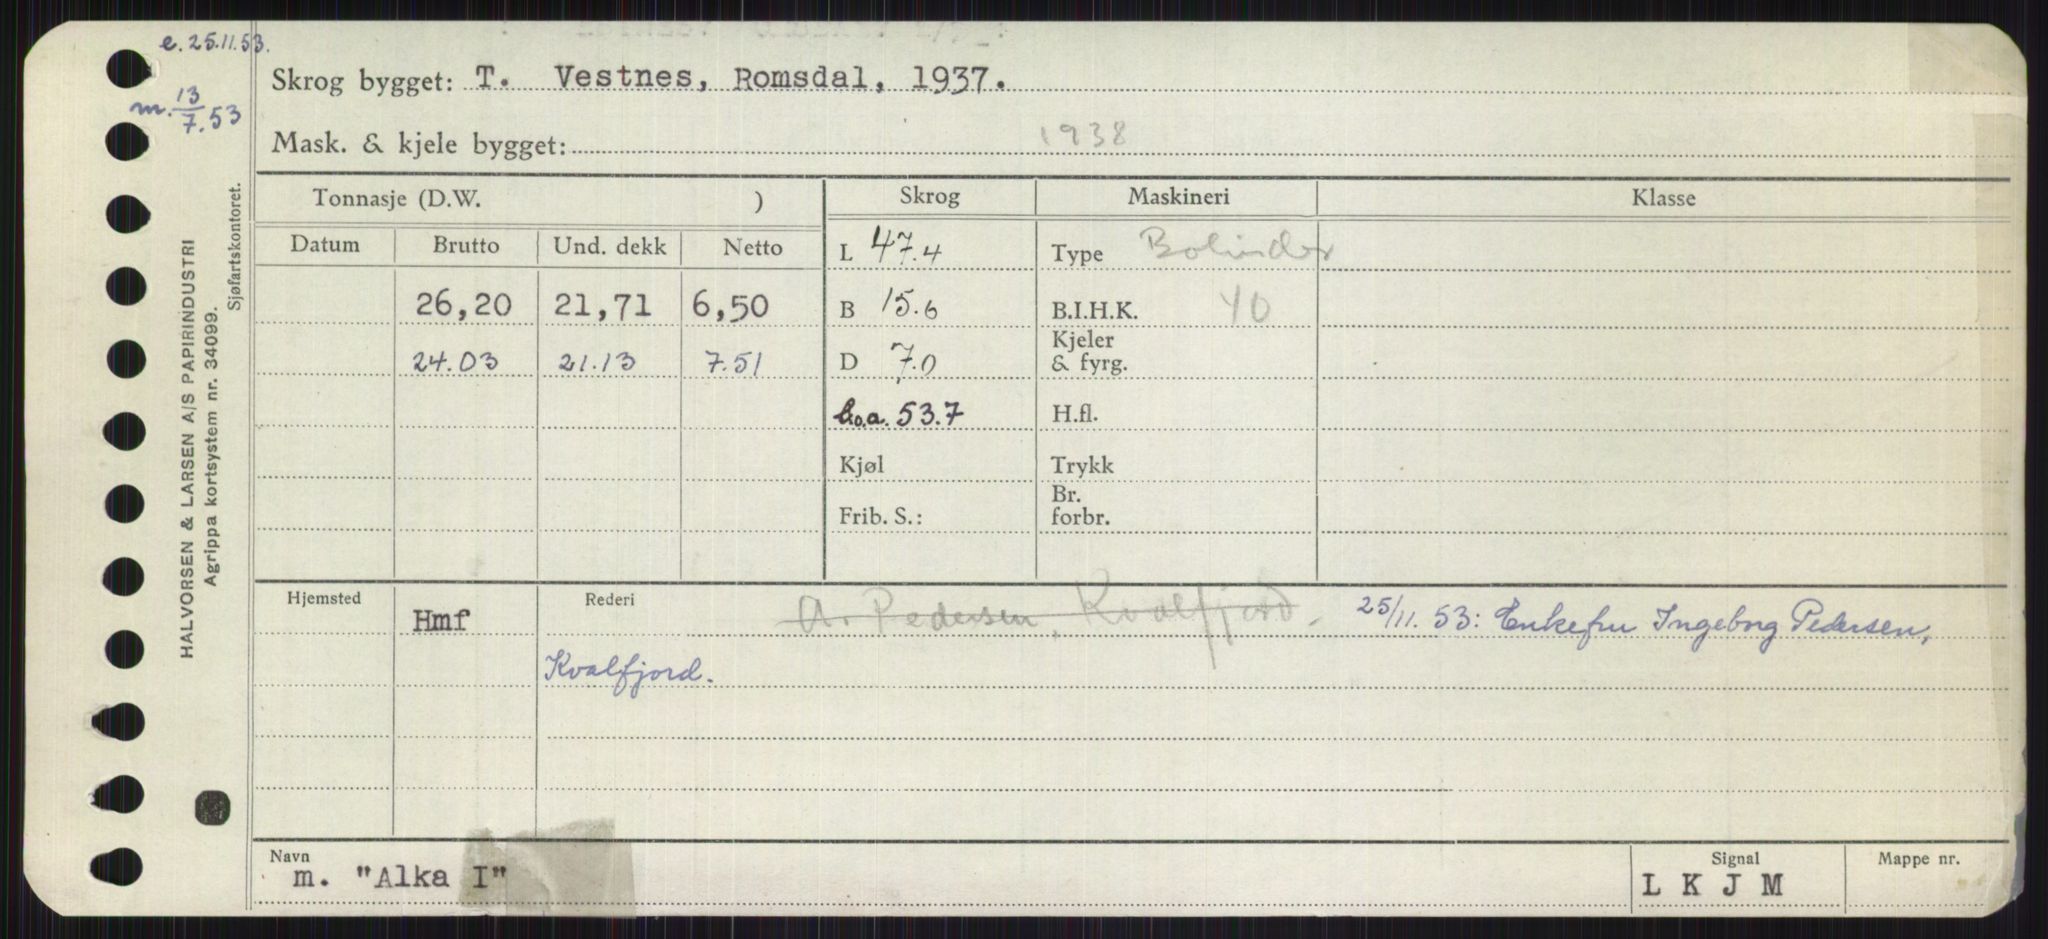 e. 25.11.53.
m. 13/7.53
Skrog bygget: T. Vestnes, Romsdal, 1937.
Mask. & kjele bygget: 1938
Tonnasje (D.W. )
Skrog
Maskineri
Klasse
Datum Brutto Und. dekk Netto
L 47.4
Type Bolinder
26,20 21,71 6,50
B 15.6
B.I.H.K. 40
24.03 21.13 7.51
D 7.0
Kjeler
& fyrg.
l.o.a. 53.7
H.fl.
Kjøl
Trykk
Frib. S.:
Br.
forbr.
Hjemsted Hmf
Rederi A. Pedersen, Kvalfjord. 25/11. 53: Enkefru Ingeborg Pedersen,
Kvalfjord.
Navn
m. "Alka I"
Signal
L K J M
Mappe nr.
HALVORSEN & LARSEN A/S PAPIRINDUSTRI
Agrippa kortsystem nr. 34099.
Sjøfartskontoret.